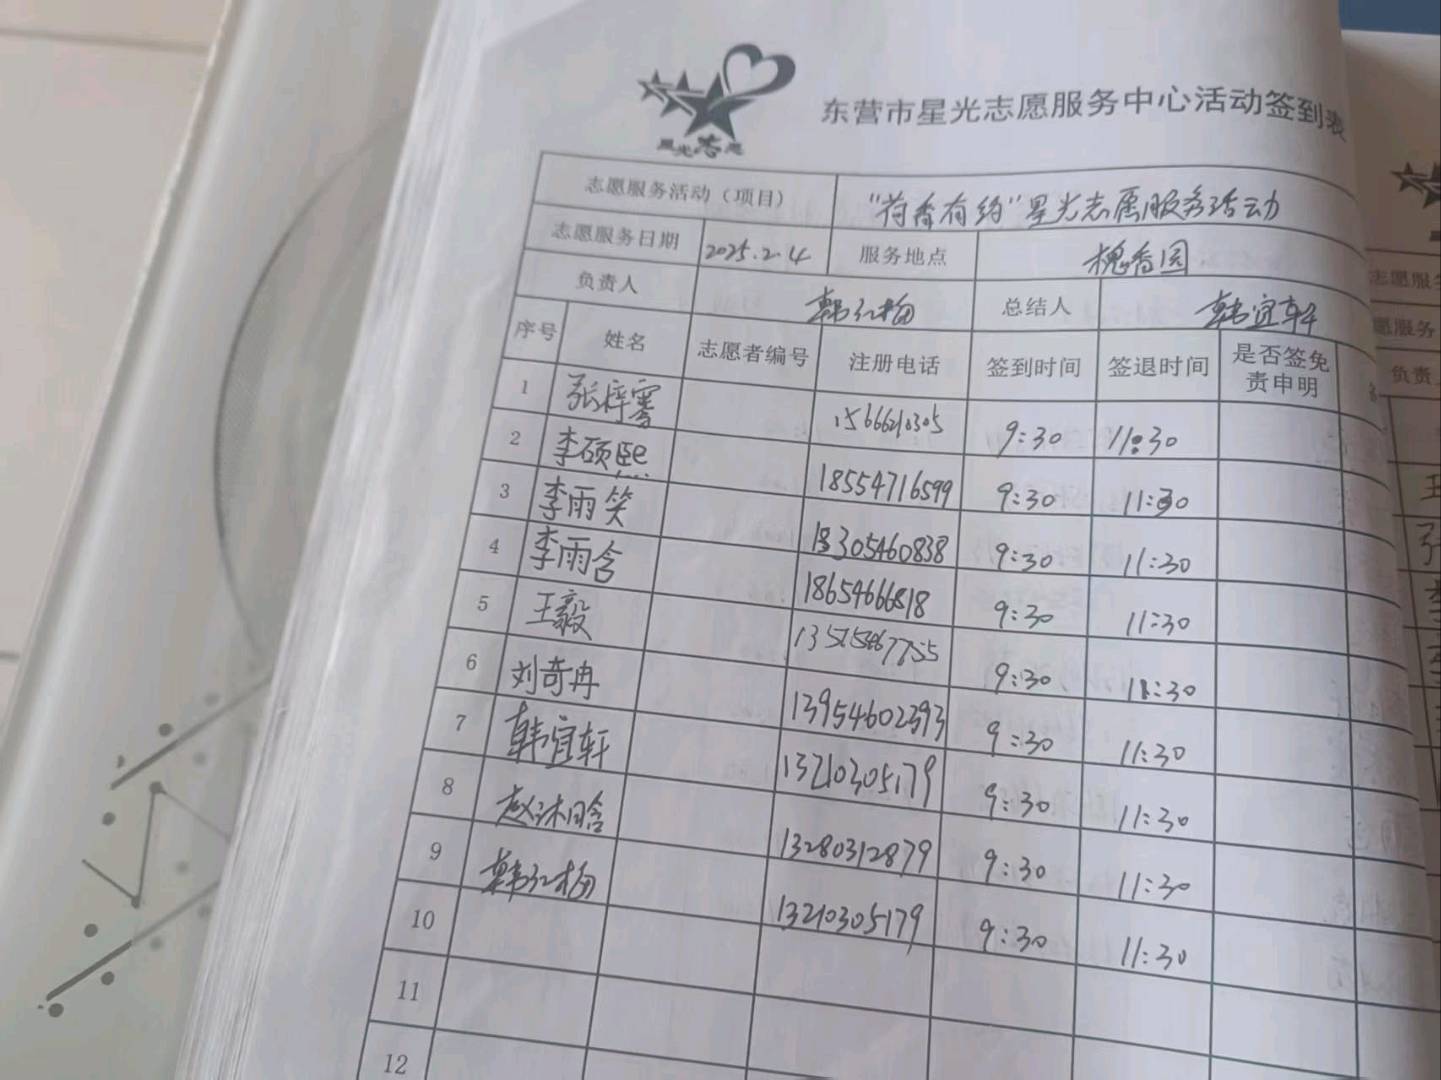 星光志愿
东营市星光志愿服务中心活动签到表
志愿服务活动（项目） “荷香有约”星光志愿服务活动
志愿服务日期 2025.2.4 服务地点 槐香园
负责人 韩红梅 总结人 韩宜轩
序号 姓名 志愿者编号 注册电话 签到时间 签退时间 是否签免责申明
1 张梓雾 15666210305 9:30 11:30
2 李硕熙 18554716599 9:30 11:30
3 李雨笑 18305460838 9:30 11:30
4 李雨含 18654666818 9:30 11:30
5 王毅 9:30 11:30
6 刘奇冉 13954602393 9:30 11:30
7 韩宜轩 13210305179 9:30 11:30
8 赵沐晗 13280312879 9:30 11:30
9 韩红梅 13210305179 9:30 11:30
10
11
12
志愿服
愿服务
负责